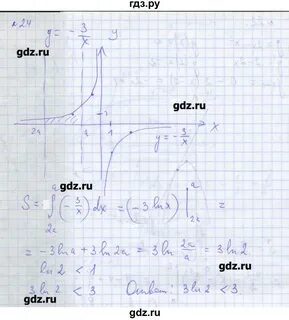 гдз.ру
№24
y = -3/x
y
gdz.ru
gdz.ru
2a
1
x
y = -3/x
gdz.ru
gdz.ru
S = ∫_{2a}^{a} (-3/x) dx = (-3 ln x) |_{2a}^{a} =
= -3 ln a + 3 ln 2a = 3 ln 2a/a = 3 ln 2
gdz.ru
gdz.ru
ln 2 < 1
3 ln 2 < 3 Ответ: 3 ln 2 < 3.
gdz.ru